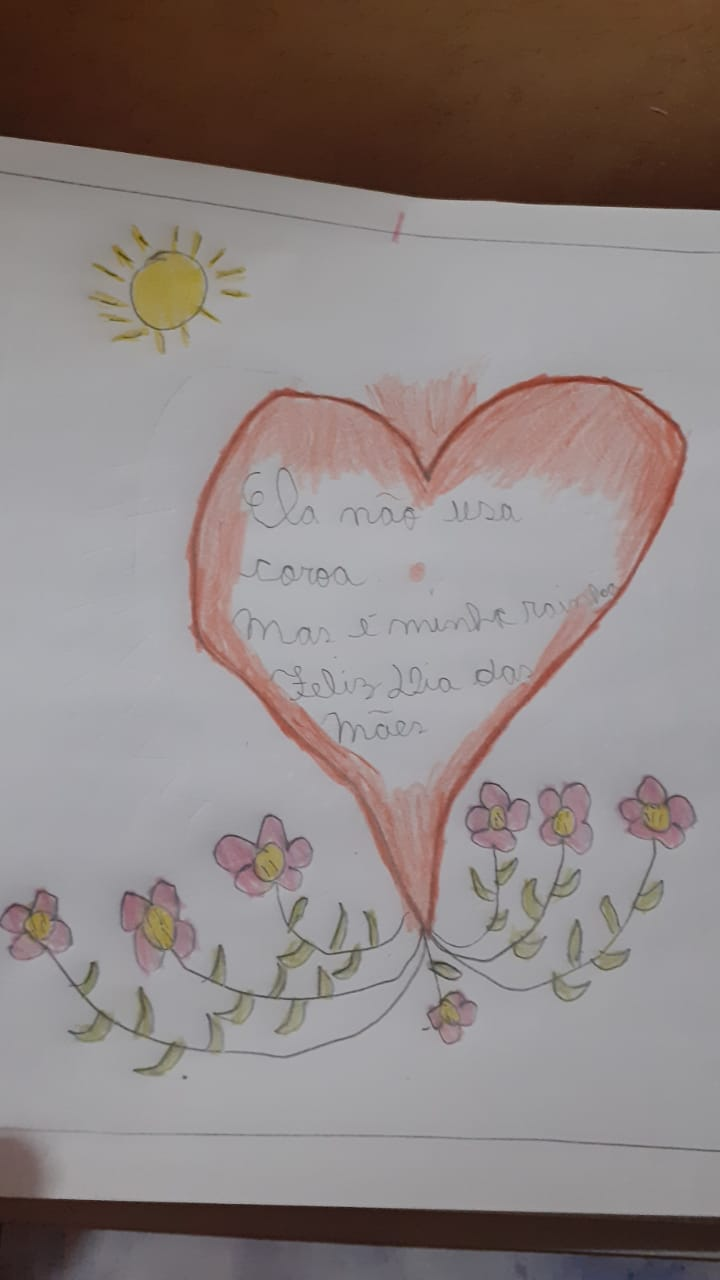 Ela não usa
coroa
Mas é minha rainha
Feliz Dia das
Mães